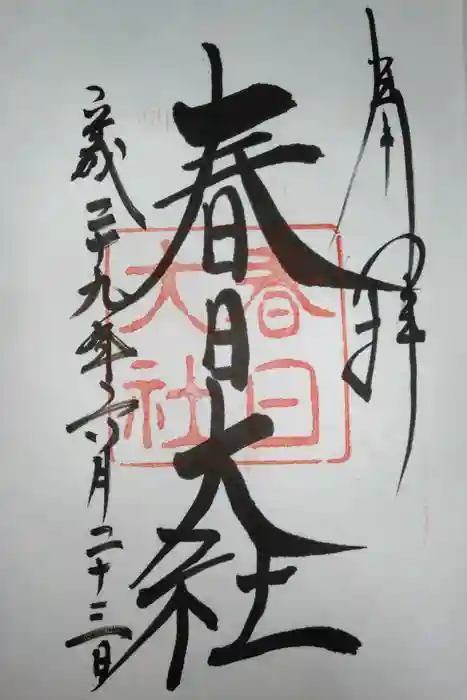 奉拝
春日大社
春日
大社
平成二十九年六月二十三日